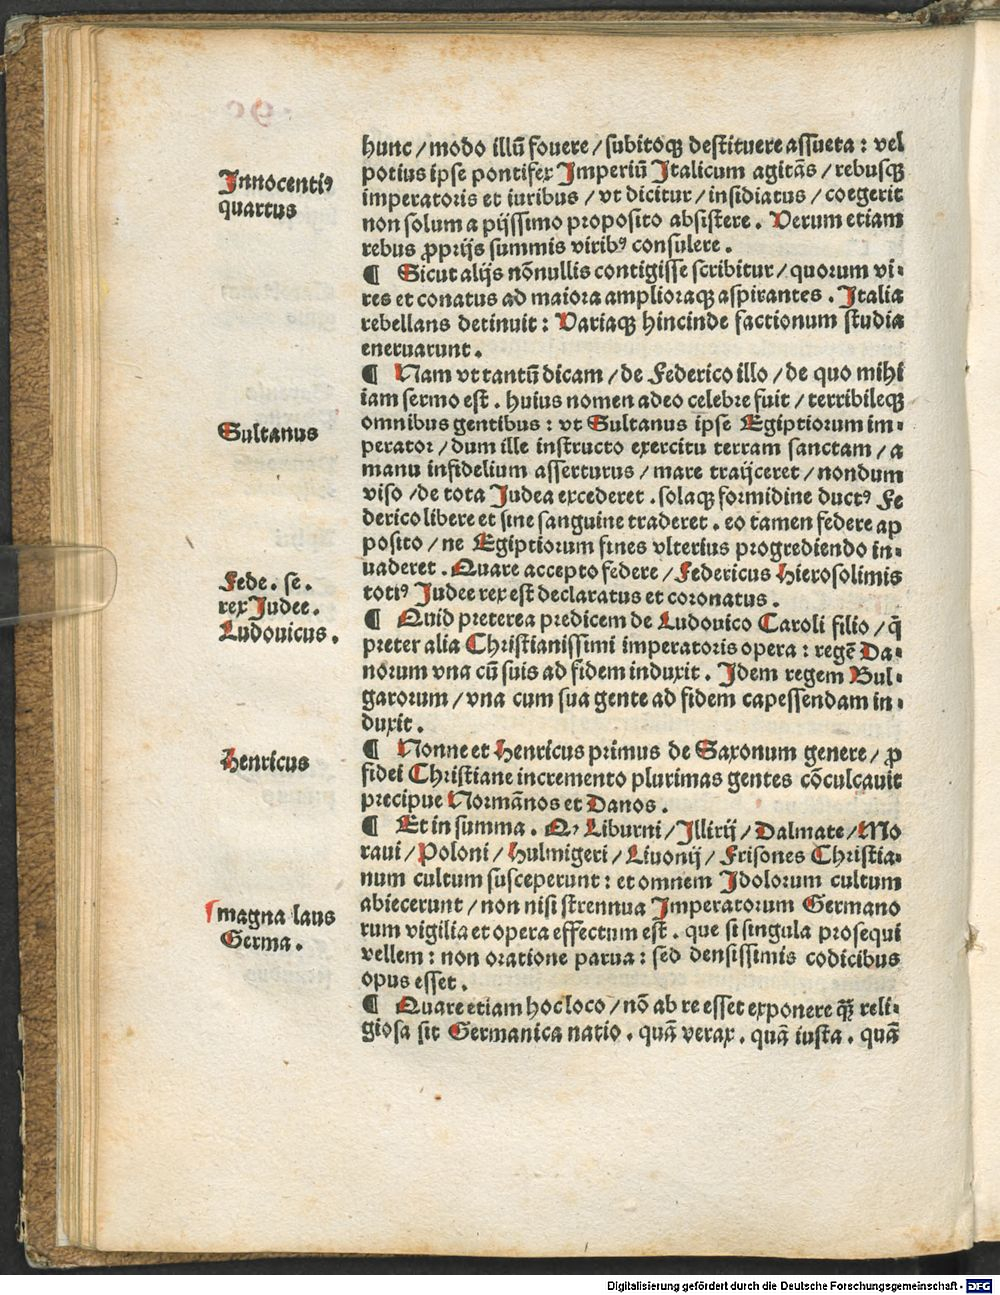 hunc / modo illū fouere / subitoqꝫ destituere assueta : vel
potius ipse pontifex Imperiū Italicum agitās / rebusqꝫ
imperatoris et iuribus / vt dicitur / insidiatus / coegerit
non solum a pijssimo proposito absistere . Verum etiam
rebus ꝓprijs summis viribꝰ consulere .
Innocentiꝰ
quartus
¶ Sicut alijs nōnullis contigisse scribitur / quorum vi-
res et conatus ad maiora amplioraqꝫ aspirantes . Italia
rebellans detinuit : Variaqꝫ hincinde factionum studia
eneruarunt .
¶ Nam vt tantū dicam / de Federico illo / de quo mihi
iam sermo est . huius nomen adeo celebre fuit / terribileqꝫ
omnibus gentibus : vt Sultanus ipse Egiptiorum im-
perator / dum ille instructo exercitu terram sanctam / a
manu infidelium asserturus / mare traijceret / nondum
viso / de tota Iudea excederet . solaqꝫ formidine ductꝰ Fe
derico libere et sine sanguine traderet . eo tamen federe ap
posito / ne Egiptiorum fines vlterius progrediendo in-
uaderet . Quare accepto federe / Federicus Hierosolimis
totiꝰ Iudee rex est declaratus et coronatus .
Sultanus
Fede . se .
rex Iudee .
Ludouicus .
¶ Quid preterea predicem de Ludouico Caroli filio / q̄
preter alia Christianissimi imperatoris opera : regē Da-
norum vna cū suis ad fidem induxit . Idem regem Bul-
garorum / vna cum sua gente ad fidem capessendam in-
duxit .
¶ Nonne et Henricus primus de Saxonum genere / ꝓ
fidei Christiane incremento plurimas gentes cōculcauit
precipue Normānos et Danos .
Henricus
¶ Et in summa . Qꝛ Liburni / Illirij / Dalmate / Mo
raui / Poloni / Hulmigeri / Liuonij / Frisones Christia-
num cultum susceperunt : et omnem Idolorum cultum
abiecerunt / non nisi strennua Imperatorum Germano
rum vigilia et opera effectum est . que si singula prosequi
vellem : non oratione parua : sed densissimis codicibus
opus esset .
magna laus
Germa .
¶ Quare etiam hoc loco / nō ab re esset exponere qꝫ̄ reli-
giosa sit Germanica natio . quā verax . quā iusta . quā
Digitalisierung gefördert durch die Deutsche Forschungsgemeinschaft - DFG